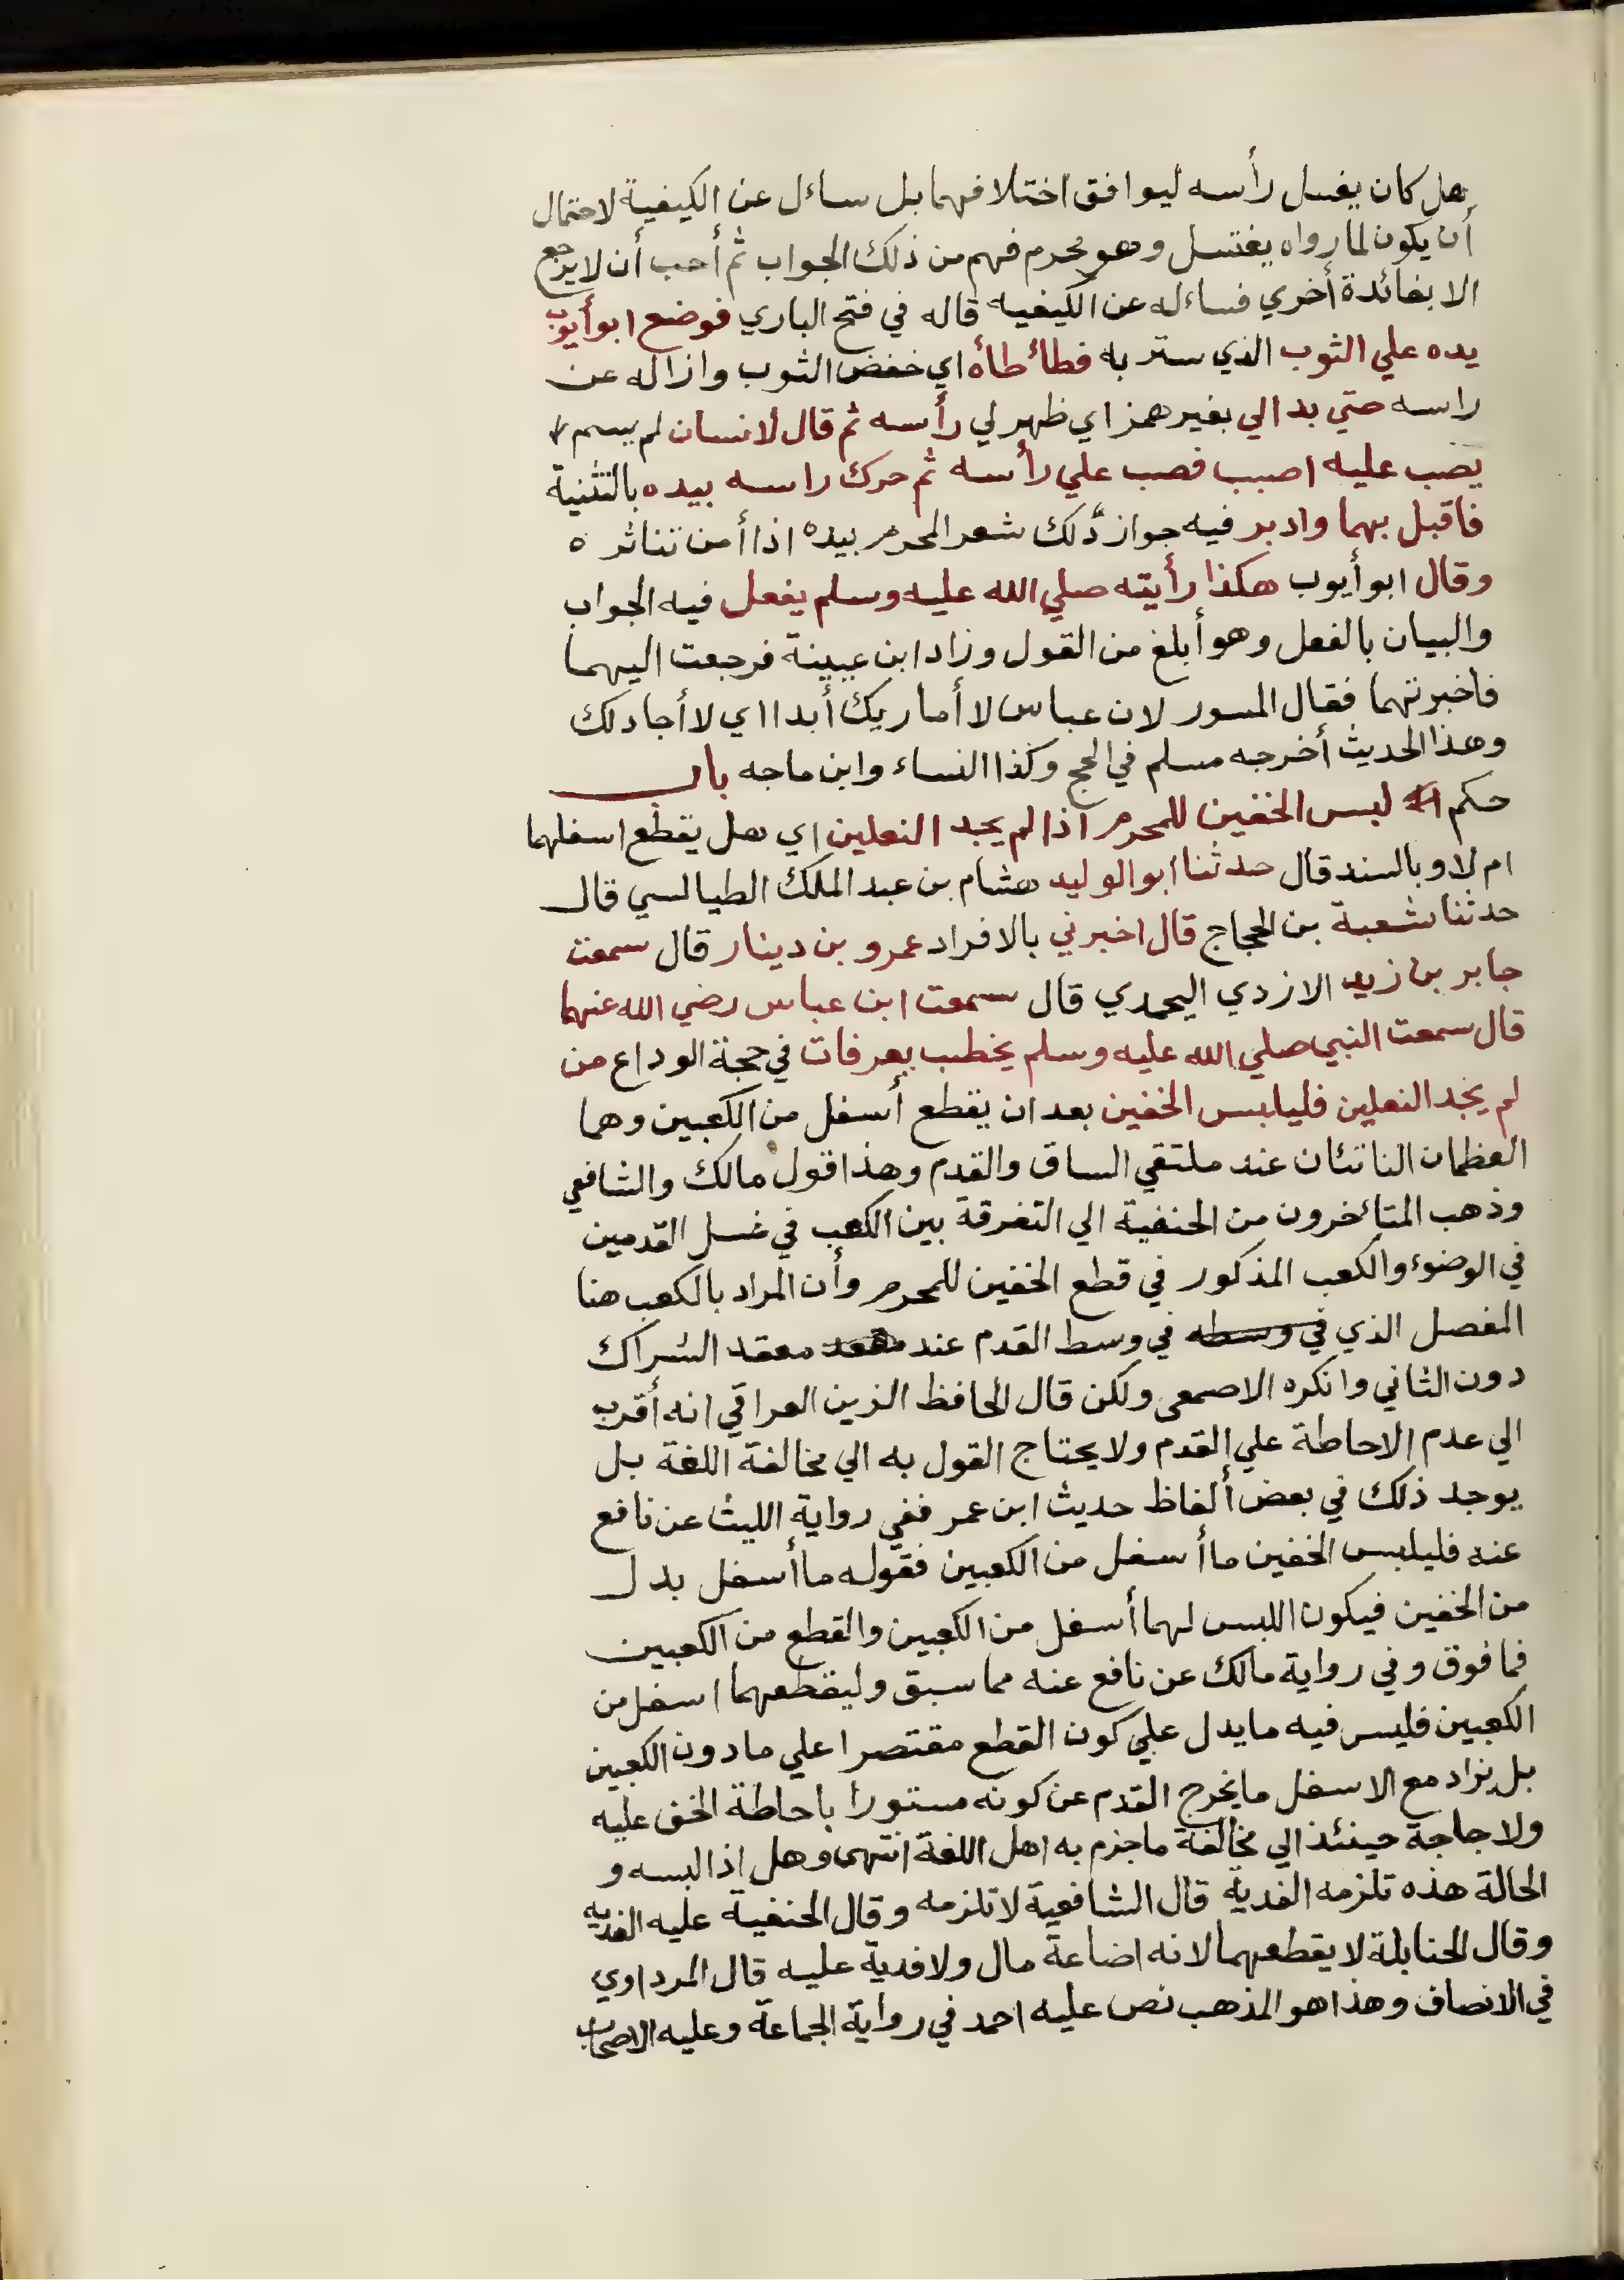 هل كان يغسل رأسه ليوافق اختلافهما بل ساءل عن الكيفية لاحتمال
أن يكون لما رواه يغتسل وهو محرم فهم من ذلك الجواب ثم أحب أن لا يرجع
الا بفائدة أخري فساءله عن الكيفيه قاله في فتح الباري فوضع ابو أيوب
يده علي الثوب الذي ستر به فطائطأه اي خفض الثوب وازاله عن
راسه حتي بدالي بغير همز اي ظهر لي رأسه ثم قال لانسان لم يسم
يصب عليه اصبب فصب علي رأسه ثم حرك راسه بيده بالتثنية
فاقبل بهما وادبر فيه جواز دلك شعر المحرم بيده اذا أمن تناثره
وقال ابو أيوب هكذا رأيته صلي الله عليه وسلم يفعل فيه الجواب
والبيان بالفعل وهو أبلغ من القول وزاد ابن عيينة فرجعت اليهما
فاخبرتهما فقال المسور لابن عباس لا أماريك أبدا اي لا أجادلك
وهذا الحديث أخرجه مسلم في الحج وكذا النساء وابن ماجه باب
حكم لبس الخفين للمحرم اذا لم يجد النعلين اي هل يقطع اسفلهما
ام لا وبالسند قال حدثنا ابو الوليد هشام بن عبد الملك الطيالسي قال
حدثنا شعبة بن الحجاج قال اخبرني بالافراد عمرو بن دينار قال سمعت
جابر بن زيد الازدي اليحمدي قال سمعت ابن عباس رضي الله عنهما
قال سمعت النبي صلي الله عليه وسلم يخطب بعرفات في حجة الوداع من
لم يجد النعلين فليلبس الخفين بعد ان يقطع أسفل من الكعبين وهما
العظمان الناتئان عند ملتقي الساق والقدم وهذا قول مالك والشافعي
وذهب المتائخرون من الحنفية الي التفرقة بين الكعب في غسل القدمين
في الوضوء والكعب المذكور في قطع الخفين للمحرم وأن المراد بالكعب هنا
المفصل الذي في وسطه في وسط القدم عند معقد الشراك
دون الثاني وانكره الاصمعي ولكن قال الحافظ الزين العراقي انه أقرب
الي عدم الاحاطة علي القدم ولا يحتاج القول به الي مخالفة اللغة بل
يوجد ذلك في بعض ألفاظ حديث ابن عمر ففي رواية الليث عن نافع
عنه فليلبس الخفين ما أسفل من الكعبين فقوله ما أسفل بدل
من الخفين فيكون اللبس لهما أسفل من الكعبين والقطع من الكعبين
فما فوق وفي رواية مالك عن نافع عنه مما سبق وليقطعهما اسفل من
الكعبين فليس فيه ما يدل علي كون القطع مقتصرا علي ما دون الكعبين
بل يزاد مع الاسفل ما يخرج القدم عن كونه مستورا باحاطة الخف عليه
ولا حاجة حينئذ الي مخالفة ما جزم به اهل اللغة انتهى وهل اذا لبسه و
الحالة هذه تلزمه الفدية قال الشافعية لا تلزمه وقال الحنفية عليه الفديه
وقال الحنابلة لا يقطعهما لانه اضاعة مال ولا فدية عليه قال المرداوي
في الانصاف وهذا هو المذهب نص عليه احمد في رواية الجماعة وعليه الاصحاب